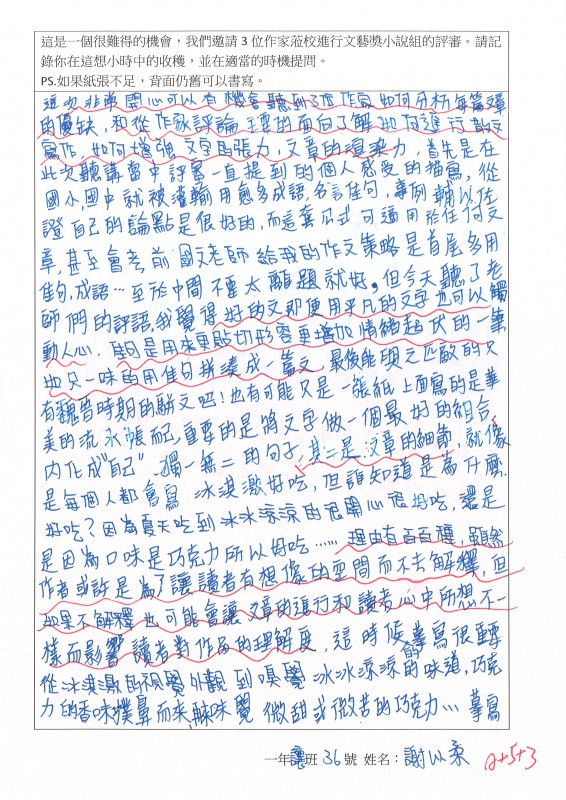 這是一個很難得的機會，我們邀請 3 位作家蒞校進行文藝獎小說組的評審。請記
錄你在這想小時中的收穫，並在適當的時機提問。
PS.如果紙張不足，背面仍舊可以書寫。
這次非常開心可以有機會聽到3位作家如何分析每篇文章
的優缺，和從作家評論主要的面向了解如何進行散文
寫作、如何增強文字的張力，文章的渲染力，首先是在
此次聽講當中評審一直提到的個人感受的描寫，從
國小、國中就被灌輸用愈多成語、名言佳句，事例輔以佐
證自己的論點是很好的，而這套公式可適用於任何文
章，甚至會考前國文老師給我的作文策略是首尾多用
佳句，成語…至於中間不要太離題就好，但今天聽了老
師們的評語，我覺得好的文即便用平凡的文字也可以觸
動人心，佳句是用來更貼切形容更增加情緒起伏的一筆
如只一味的用佳句拼湊成一篇文，最後能與之匹敵的只
有魏晉時期的駢文吧！也有可能只是一張紙上面寫的是華
美的流水帳而已，重要的是將文字做一個最好的組合、
內化成“自己”獨一無二的句子，其二是文章的細節，就像
是每個人都會寫 冰淇淋好吃，但誰知道是為什麼
好吃？因為夏天吃到冰冰涼涼的很開心很好吃，還是
是因為口味是巧克力所以好吃……理由有百百種，雖然
作者或許是為了讓讀者有想像的空間而不去解釋，但
如果不解釋也可能會讓文章的進行和讀者心中所想不一
樣而影響讀者對作品的理解度，這時候摹寫很重
從冰淇淋的視覺外觀到嗅覺冰冰涼涼的味道，巧克
力的香味撲鼻而來，味覺 微甜或微苦的巧克力…摹寫
一年 班 36號 姓名：謝以柔
2+5+3